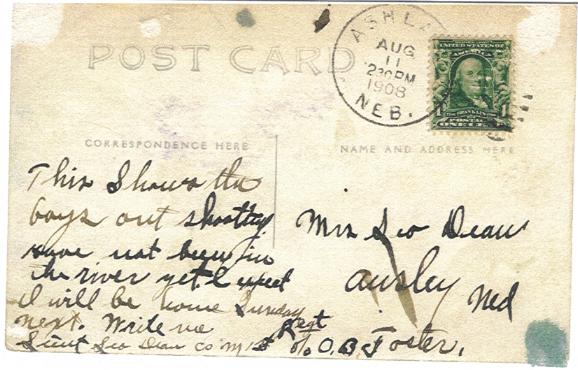 POST CARD
ASHLA
AUG
11
230PM
1908
NEB.
UNITED STATES OF AMERICA
1
POSTAGE
ONE CENT
CORRESPONDENCE HERE
NAME AND ADDRESS HERE
This Shows the
boys out shooting
have not been in
the river yet I expect
I will be home Sunday
next. Write me
Lieut Geo Dean Co M 1st Regt
Mrs Geo Dean
Ansley Neb
c/o O.B. Foster.